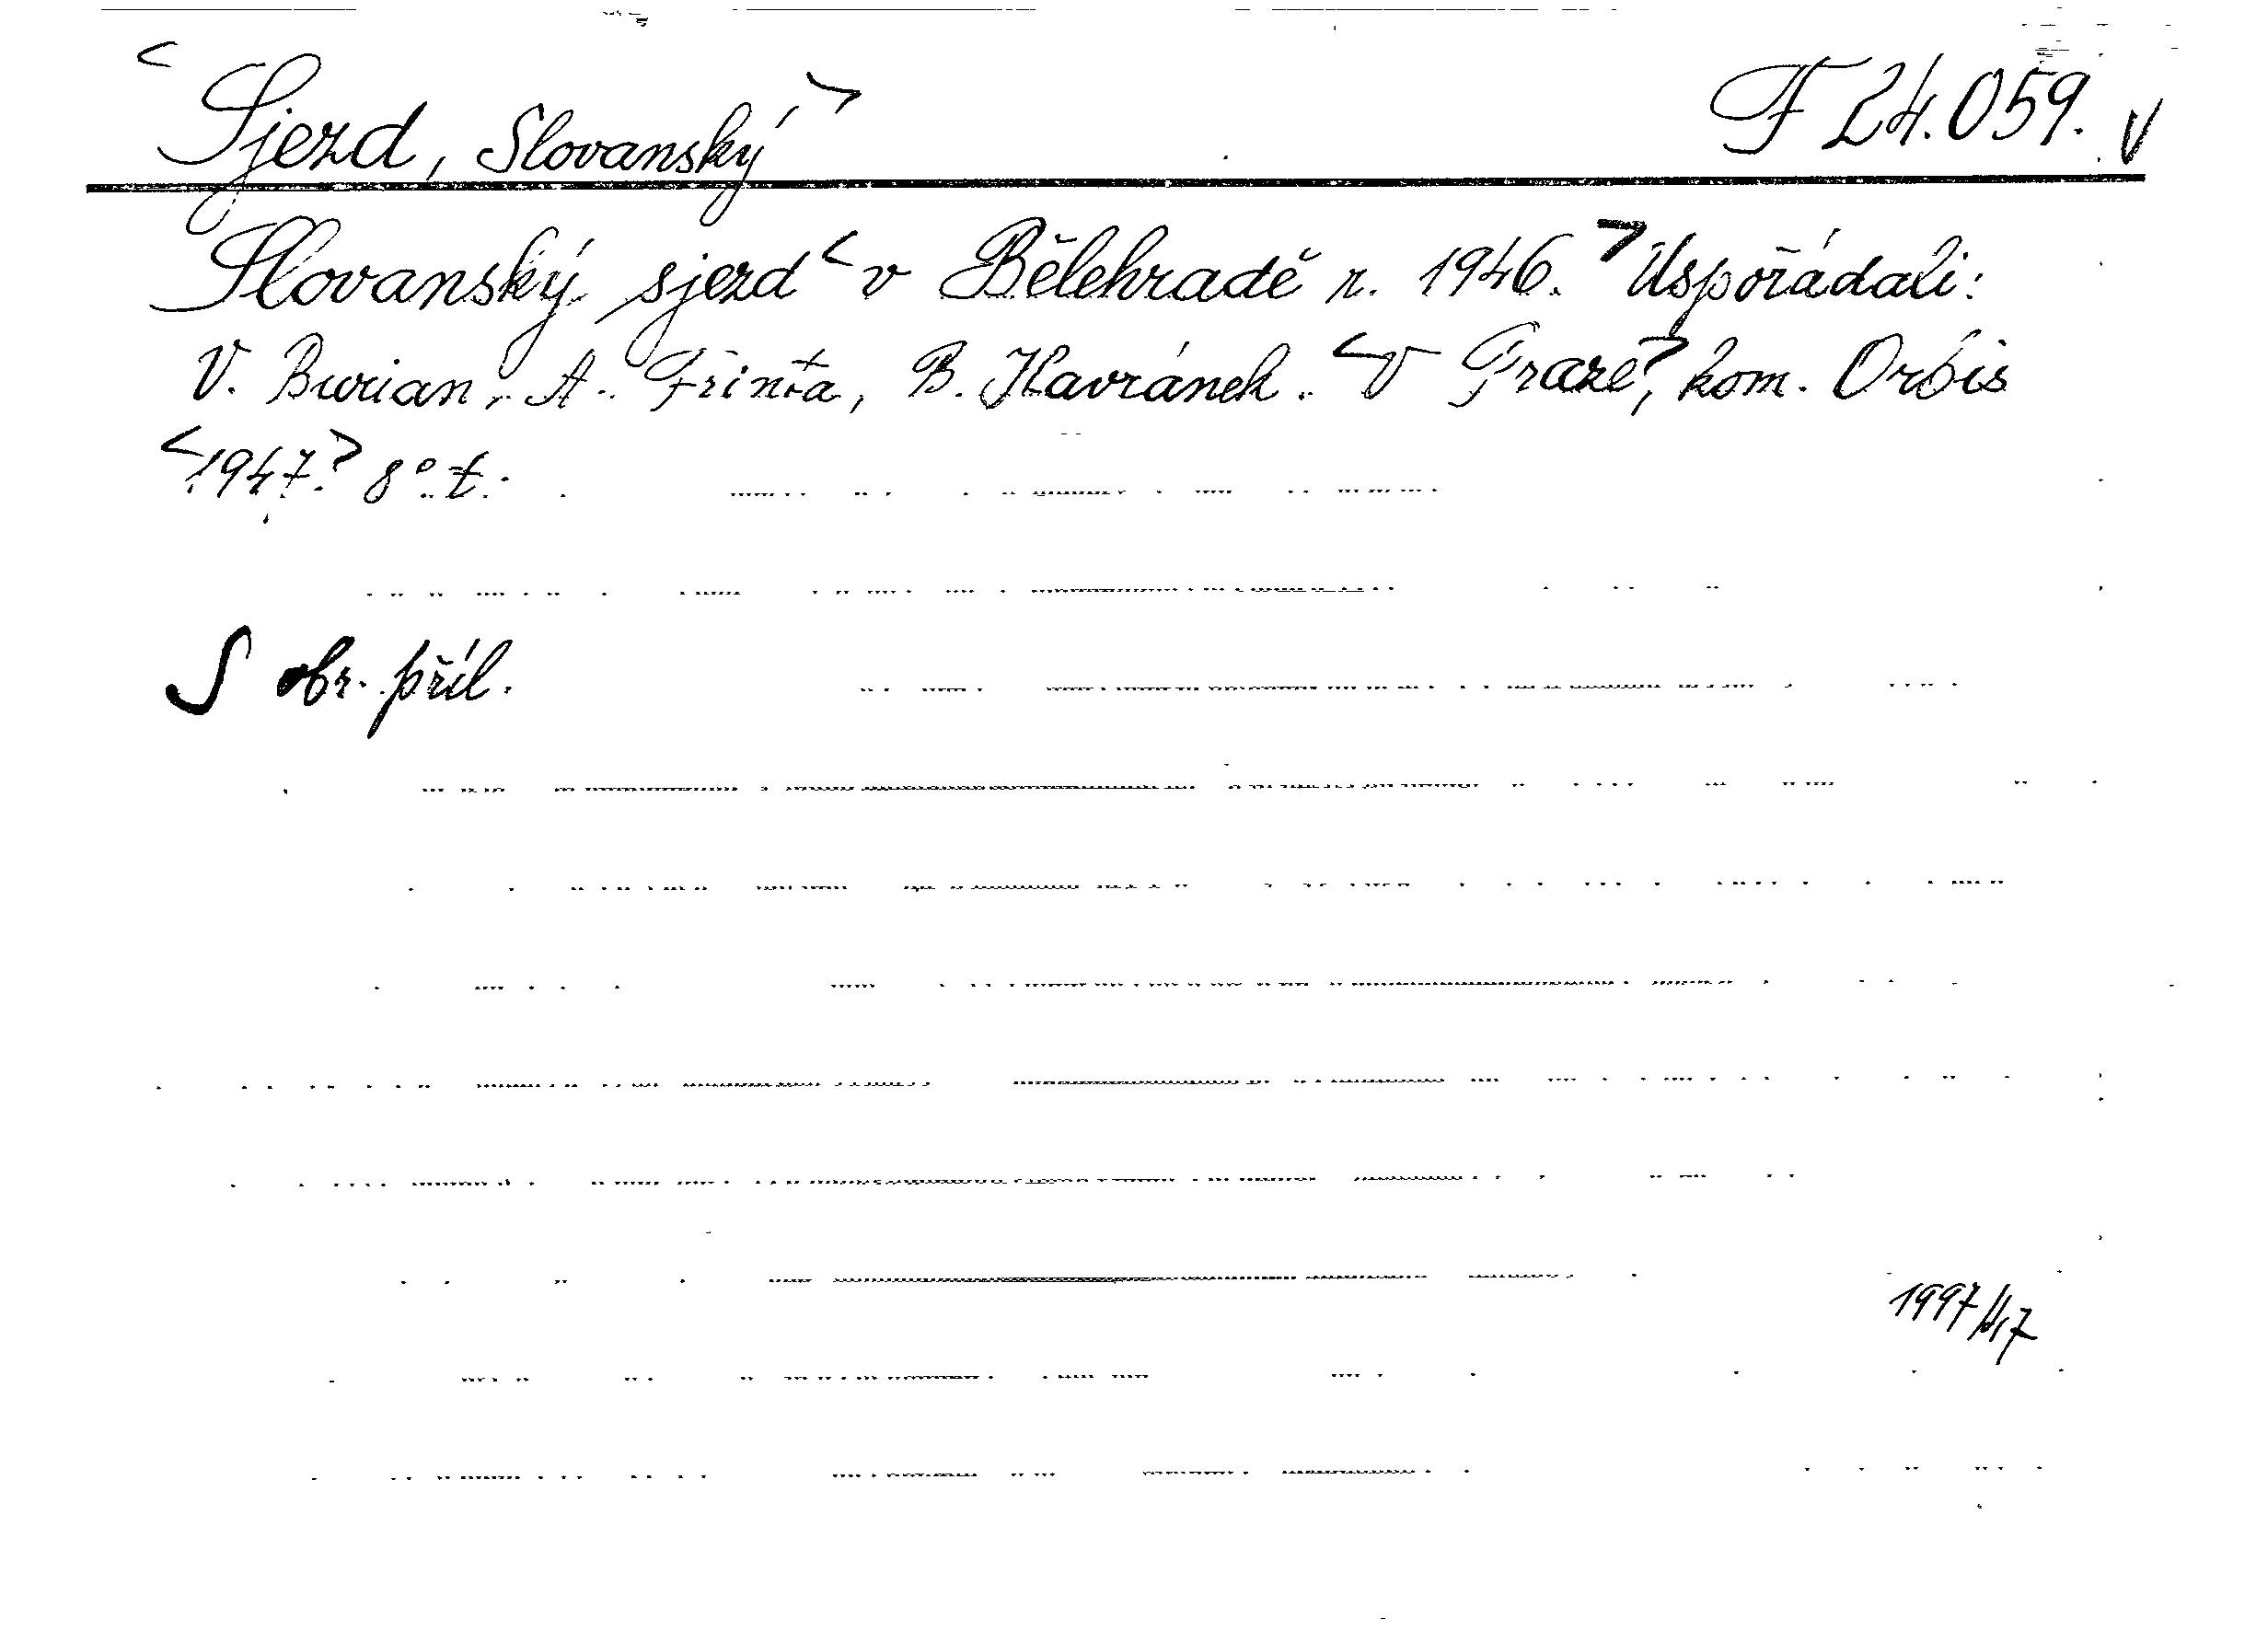 <Sjezd, Slovanský> F 24.059. V
Slovanský sjezd < v Bělehradě r. 1946. > Uspořádali:
V. Burian, A. Frinta, B. Havránek. <V Praze>, kom. Orbis
<1947.> 8° t.
S obr. příl.